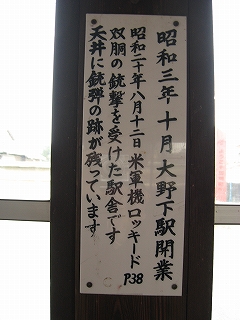 昭和三年十月大野下駅開業
昭和二十年八月十二日米軍機ロッキードP38
双胴の銃撃を受けた駅舎です
天井に銃弾の跡が残っています